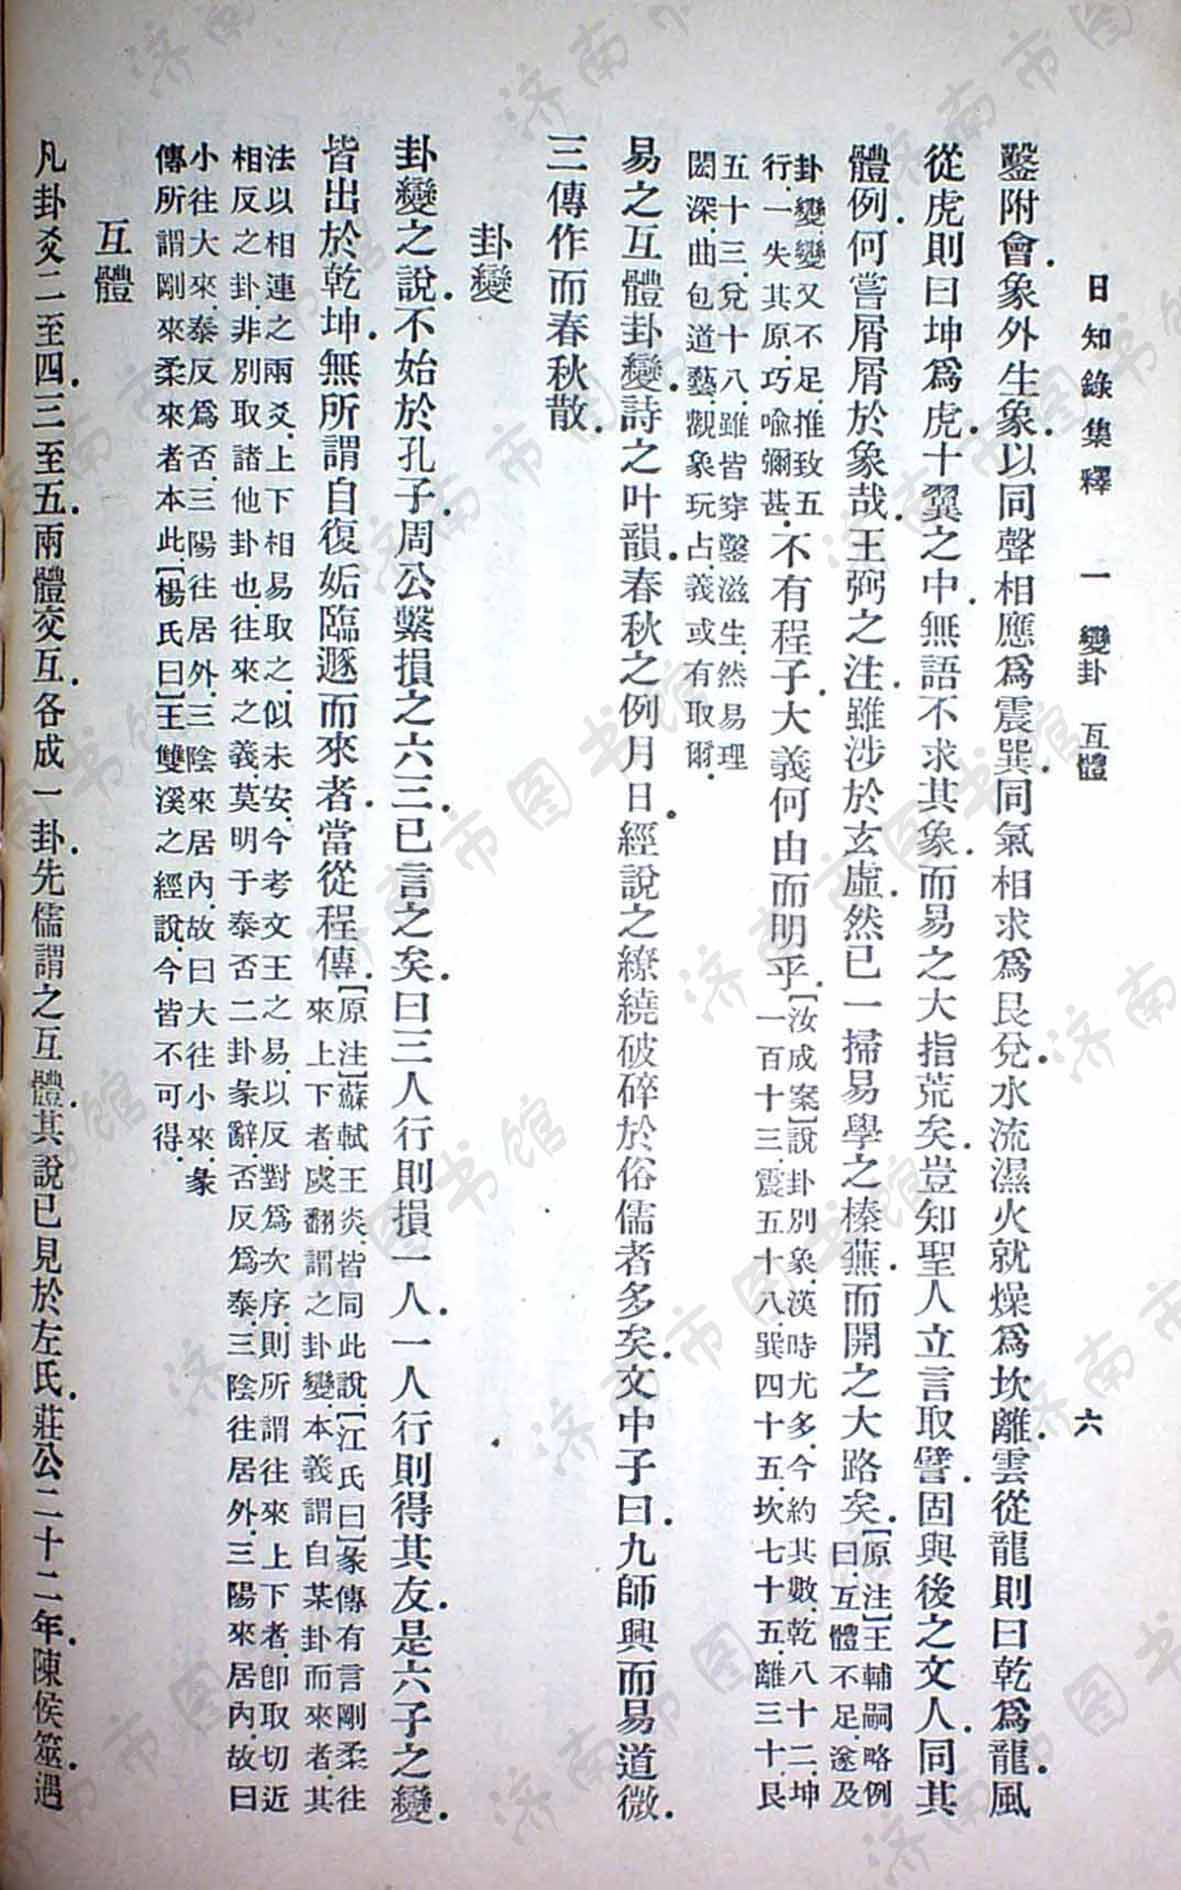 日知錄集釋　一　變卦　互體　六
鑿附會．象外生象．以同聲相應爲震巽．同氣相求爲艮兌．水流濕火就燥爲坎離．雲從龍則曰乾爲龍．風
從虎則曰坤爲虎．十翼之中．無語不求其象．而易之大指荒矣．豈知聖人立言取譬．固與後之文人．同其
體例．何嘗屑屑於象哉．王弼之注．雖涉於玄虛．然已一掃易學之榛蕪．而開之大路矣．
［原注］王輔嗣略例
曰．互體不足．遂及
卦變．變又不足．推致五
行．一失其原．巧喻彌甚．
不有程子．大義何由而明乎．
［汝成案］說卦別象．漢時尤多．今約其數．乾八十二．坤
一百十三．震五十八．巽四十五．坎七十五．離三十．艮
五十三．兌十八．雖皆穿鑿滋生．然易理
閎深．曲包道藝．觀象玩占．義或有取爾．
易之互體卦變．詩之叶韻．春秋之例月日．經說之繚繞破碎於俗儒者多矣．文中子曰．九師興而易道微．
三傳作而春秋散．
卦變
卦變之說．不始於孔子．周公繫損之六三．已言之矣．曰三人行則損一人．一人行則得其友．是六子之變．
皆出於乾坤．無所謂自復姤臨遯而來者．當從程傳．
［原注］蘇軾王炎．皆同此說．［江氏曰］彖傳有言剛柔往
來上下者．虞翻謂之卦變．本義謂自某卦而來者．其
法以相連之兩爻．上下相易取之．似未安．今考文王之易．以反對爲次序．則所謂往來上下者．卽取切近
相反之卦．非別取諸他卦也．往來之義．莫明于泰否二卦彖辭．否反爲泰．三陰往居外．三陽來居內．故曰
小往大來．泰反爲否．三陽往居外．三陰來居內．故曰大往小來．彖
傳所謂剛來柔來者本此．［楊氏曰］王雙溪之經說．今皆不可得．
互體
凡卦爻二至四．三至五．兩體交互．各成一卦．先儒謂之互體．其說已見於左氏．莊公二十二年．陳侯筮．遇
济南市图书馆